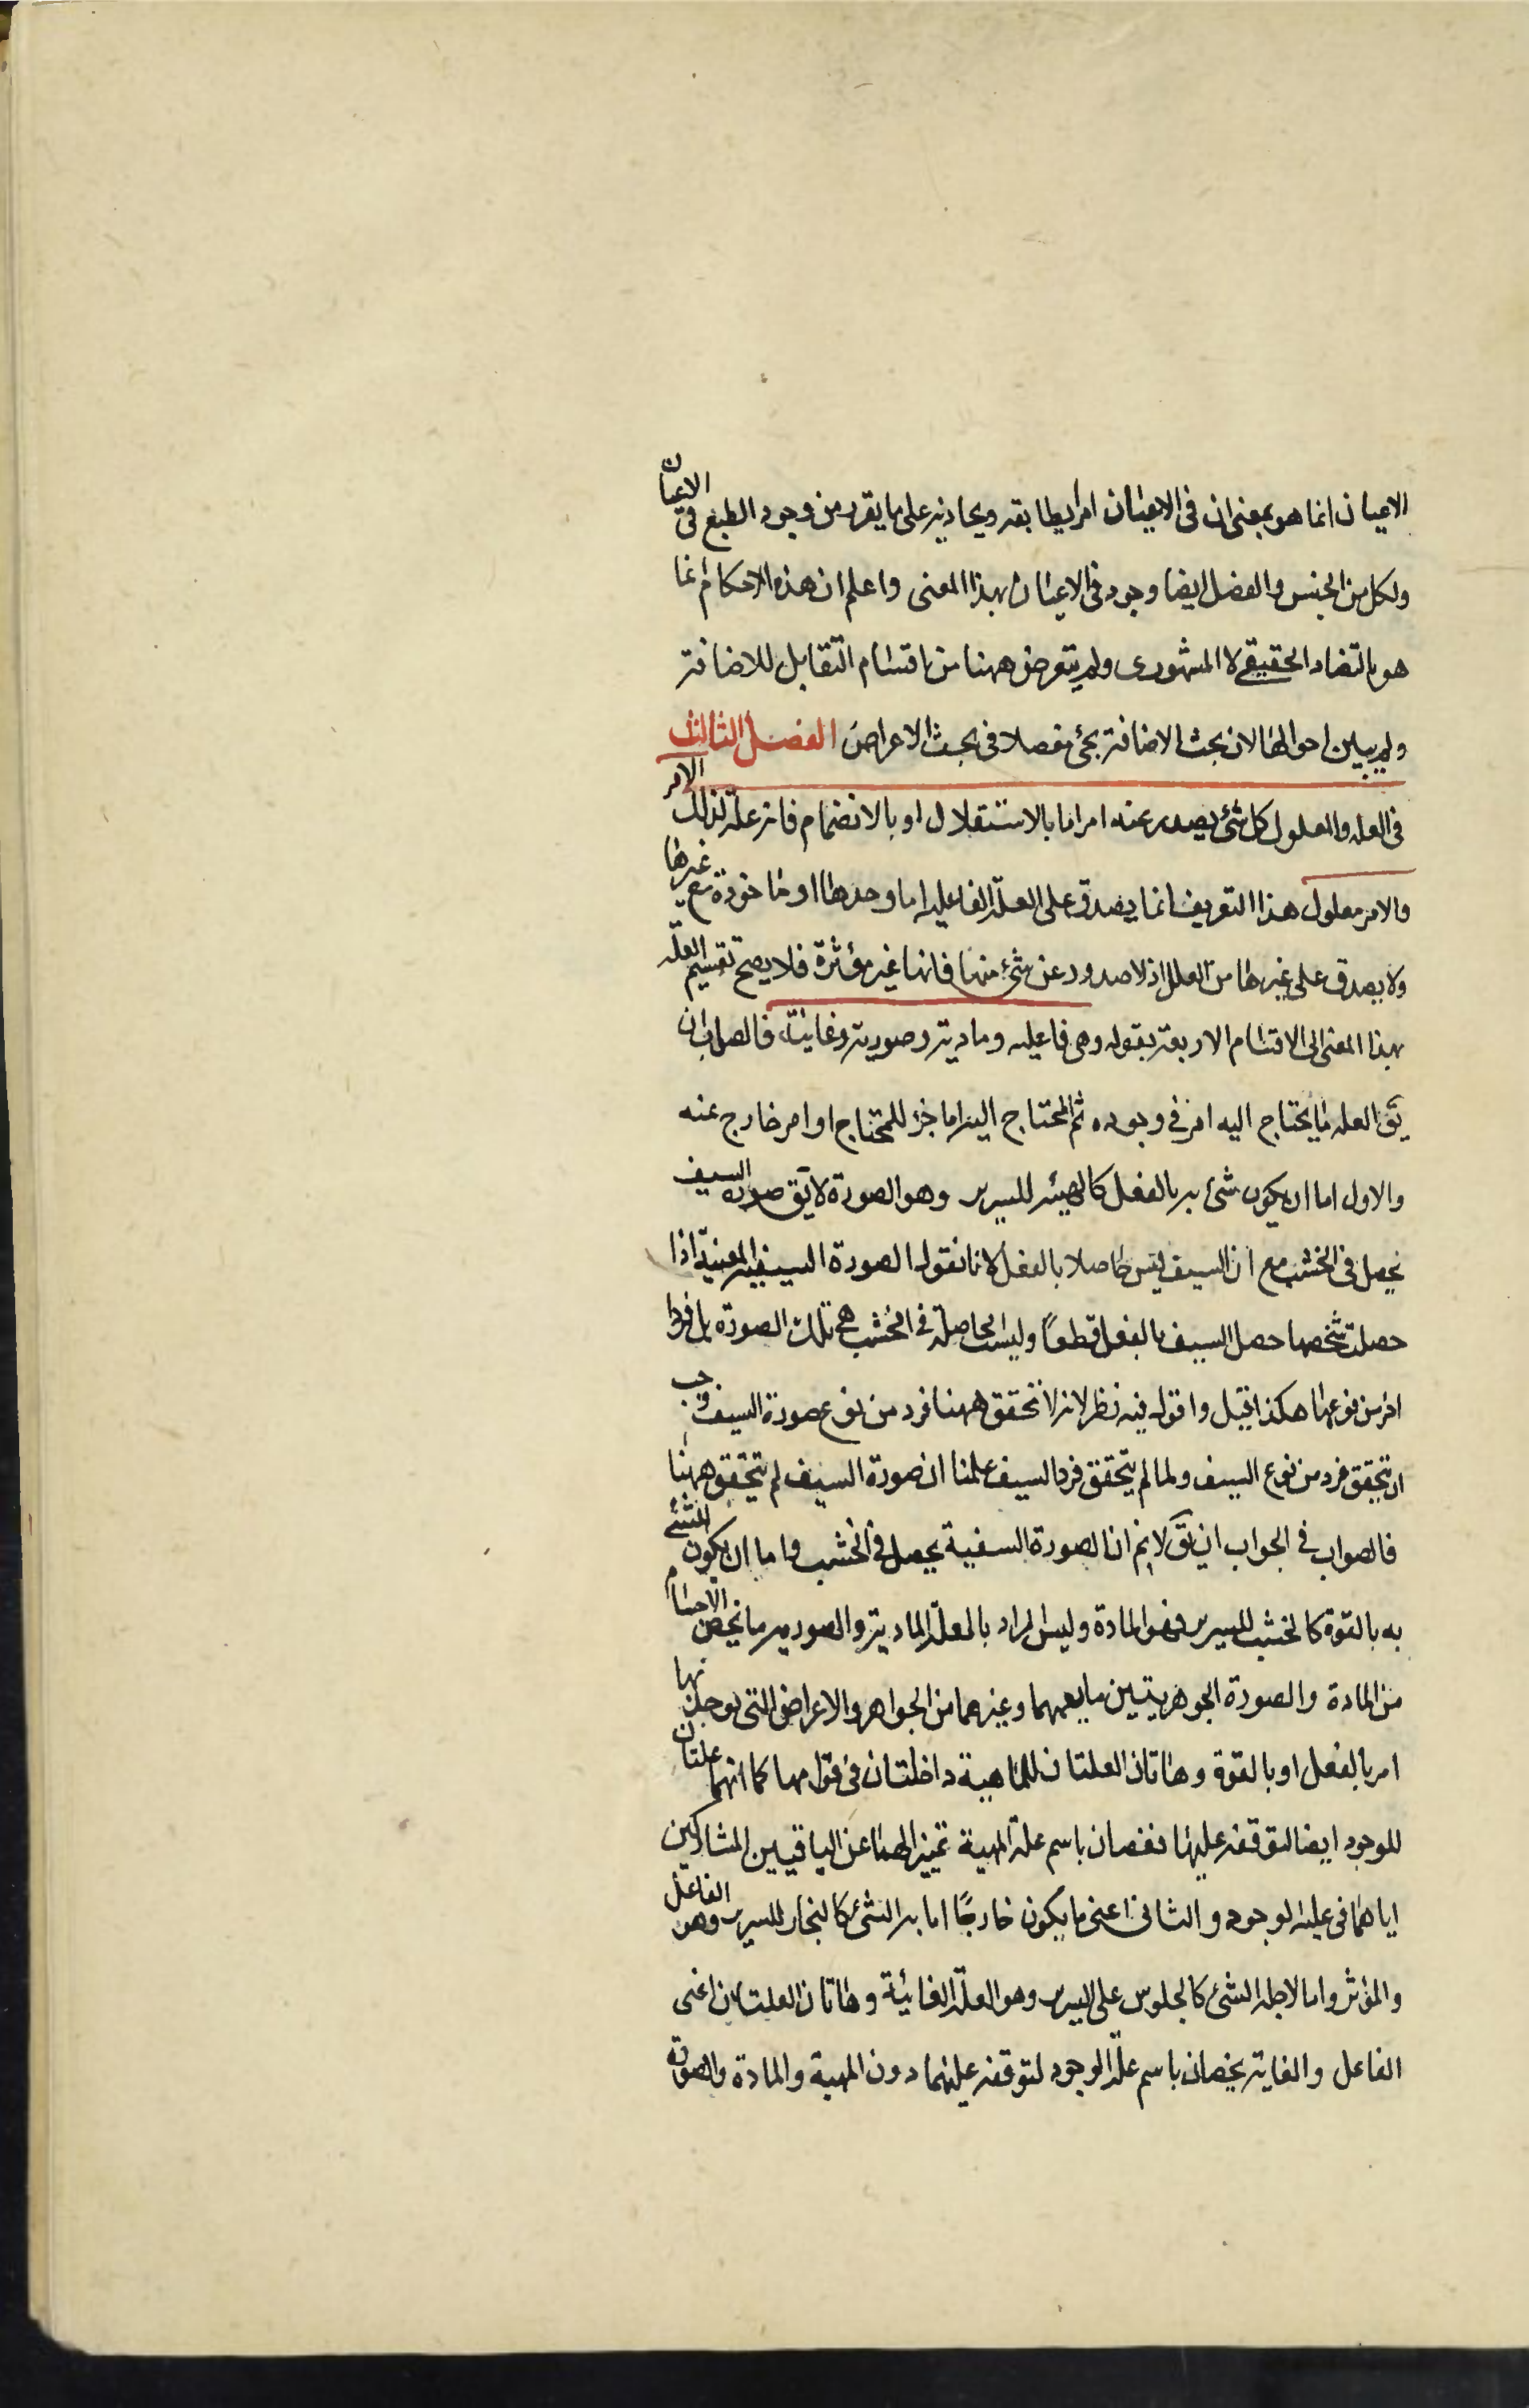 الاعیان انما هو بمعنی ان فی الاعیان امر یطابقه ویحاذیه علی ما یقرر من وجود الطبع فی الاعیان
ولکل من الجنس والفصل ایضا وجود فی الاعیان بهذا المعنی واعلم ان هذه الاحکام انما
هو بالتضاد الحقیقی لا المشهوری ولم یتعرض ههنا من اقسام التقابل للاضافة
ولم یبین احوالها لان بحث الاضافة یجئ مفصلا فی بحث الاعراض الفصل الثالث
فی العله والمعلول کل شئ یصدر عنه امر اما بالاستقلال او بالانضمام فانه علة لذلک الامر
والامر معلول هذا التعریف انما یصدق علی العلة الفاعلیه اما وحدها او ماخوذة مع غیرها
ولا یصدق علی غیرها من العلل اذ لا صدور عن شئ منها فانها غیر مؤثرة فلا یصح تقسیم العلة
بهذا المعنی الی الاقسام الاربعة بقوله وهی فاعلیه ومادیة وصوریة وغائیة فالصواب ان
یق العله ما یحتاج الیه امر فی وجوده ثم المحتاج الیه اما جزء للمحتاج او امر خارج عنه
والاول اما ان یکون شئ به بالفعل کالهیئه للسریر وهو الصورة لا یق صورة السیف
یحصل فی الخشب مع ان السیف لیس حاصلا بالفعل لانا نقول الصورة السیفیه المعینة اذا
حصلت شخصها حصل السیف بالفعل قطعاً ولیست الحاصلة فی الخشب هی تلک الصورة بل فرد
اخر من نوعها هکذا قیل واقول فیه نظر لانه لا تحقق ههنا فرد من نوع صورة السیف وجب
ان یتحقق فرد من نوع السیف ولما لم یتحقق فرد السیف علمنا ان صورة السیف لم یتحقق ههنا
فالصواب فی الجواب ان یق لا نم ان الصورة السفیة یحصل فی الخشب واما ان یکون الشئ
به بالقوة کالخشب للسریر فهو المادة ولیس المراد بالعلة المادیة والصوریه ما یختص الاجسام
من المادة والصورة الجوهریتین ما یعمهما وغیرهما من الجواهر والاعراض التی یوجد بها
امر بالفعل او بالقوة وهاتان العلتان للماهیة داخلتان فی قوامها کما انهما علتان
للوجود ایضا لتوقفه علیهما فخصان باسم علة المهیة تمییزا لهما عن الباقیین المشارکین
ایاهما فی علیة الوجود والثانی اعنی ما یکون خارجًا اما به الشئ کالنجار للسریر وهو الفاعل
والمؤثر واما لاجله الشئ کالجلوس علی السریر وهو العلة الغائیة وهاتان العلتان اعنی
الفاعل والغایة یخصان باسم علة الوجود لتوقفه علیهما دون المهیة والمادة والصورة